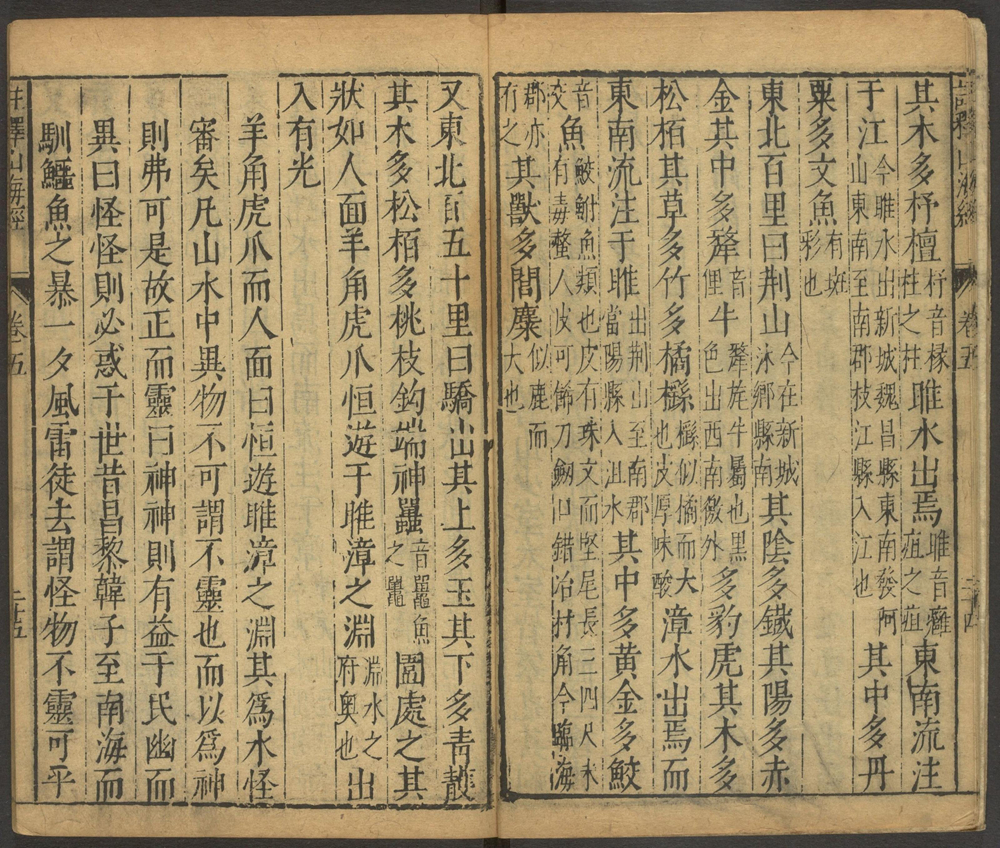 其木多杼檀杼音椽柱之柱雎水出焉雎音癰疽之疽東南流注
于江今雎水出新城魏昌縣東南發阿山東南至南郡枝江縣入江也其中多丹
粟多文魚有斑彩也
東北百里曰荆山今在新城沶鄉縣南其陰多鐵其陽多赤
金其中多犛音貍牛犛旄牛屬也黑色出西南徼外多豹虎其木多
松栢其草多竹多橘櫾櫾似橘而大也皮厚味酸漳水出焉而
東南流注于雎出荆山至南郡當陽縣入沮水其中多黄金多鮫
音鮫鮒魚類也皮有珠文而堅尾長三四尺末
交魚有毒螫人皮可飾刀劒口錯冶材角今臨海
郡亦有之其獸多閭麋似鹿而大也
又東北百五十里曰驕山其上多玉其下多青雘
其木多松栢多桃枝鈎端神𧕦音鼉魚之鼉圍處之其
狀如人面羊角虎爪恒遊于雎漳之淵淵水之府奥也出
入有光
羊角虎爪而人面曰恒遊雎漳之淵其爲水怪
審矣凡山水中異物不可謂不靈也而以爲神
則弗可是故正而靈曰神神則有益于民幽而
異曰怪怪則必惑于世昔昌黎韓子至南海而
馴鱷魚之暴一夕風雷徒去謂怪物不靈可乎
註釋山海經
卷五
二十五
卷五
二十四